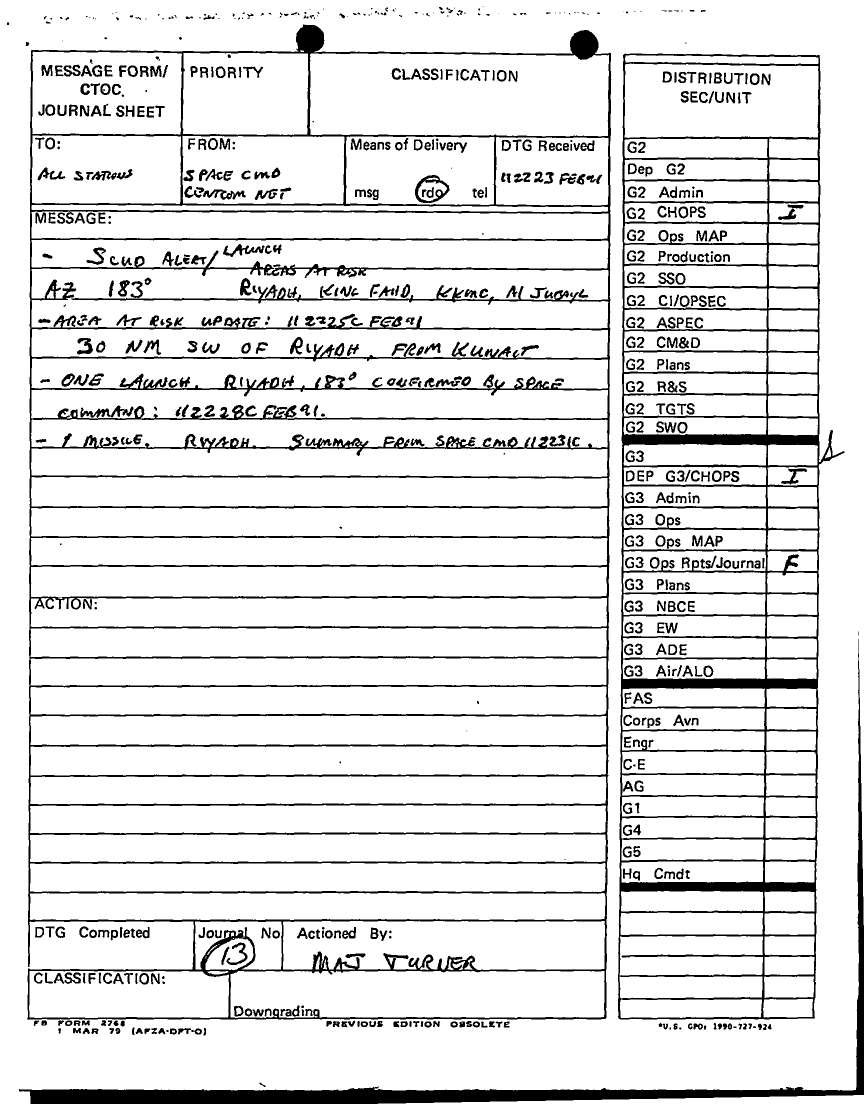 MESSAGE FORM/
CTOC.
JOURNAL SHEET
PRIORITY
CLASSIFICATION
TO:
ALL STATIONS
FROM:
SPACE CMD
CENTCOM NET
Means of Delivery
msg rdo tel
DTG Received
112223 FEB91
MESSAGE:
- SCUD ALERT/LAUNCH
AREAS AT RISK
AZ 183° RIYADH, KING FAHD, KKMC, Al JUBAYL
- AREA AT RISK UPDATE: 112225C FEB91
30 NM SW OF RIYADH, FROM KUWAIT
- ONE LAUNCH. RIYADH, 183° CONFIRMED BY SPACE
COMMAND: 112228C FEB91.
- 1 MISSILE. RIYADH. SUMMARY FROM SPACE CMD 112231C.
ACTION:
DTG Completed
Journal No
13
Actioned By:
MAJ TURNER
CLASSIFICATION:
Downgrading
FB FORM 2768
1 MAR 79 (AFZA-DPT-O)
PREVIOUS EDITION OBSOLETE
DISTRIBUTION
SEC/UNIT
G2
Dep G2
G2 Admin
G2 CHOPS I
G2 Ops MAP
G2 Production
G2 SSO
G2 CI/OPSEC
G2 ASPEC
G2 CM&D
G2 Plans
G2 R&S
G2 TGTS
G2 SWO
G3
DEP G3/CHOPS I
G3 Admin
G3 Ops
G3 Ops MAP
G3 Ops Rpts/Journal F
G3 Plans
G3 NBCE
G3 EW
G3 ADE
G3 Air/ALO
FAS
Corps Avn
Engr
C-E
AG
G1
G4
G5
Hq Cmdt
*U.S. GPO: 1990-727-924